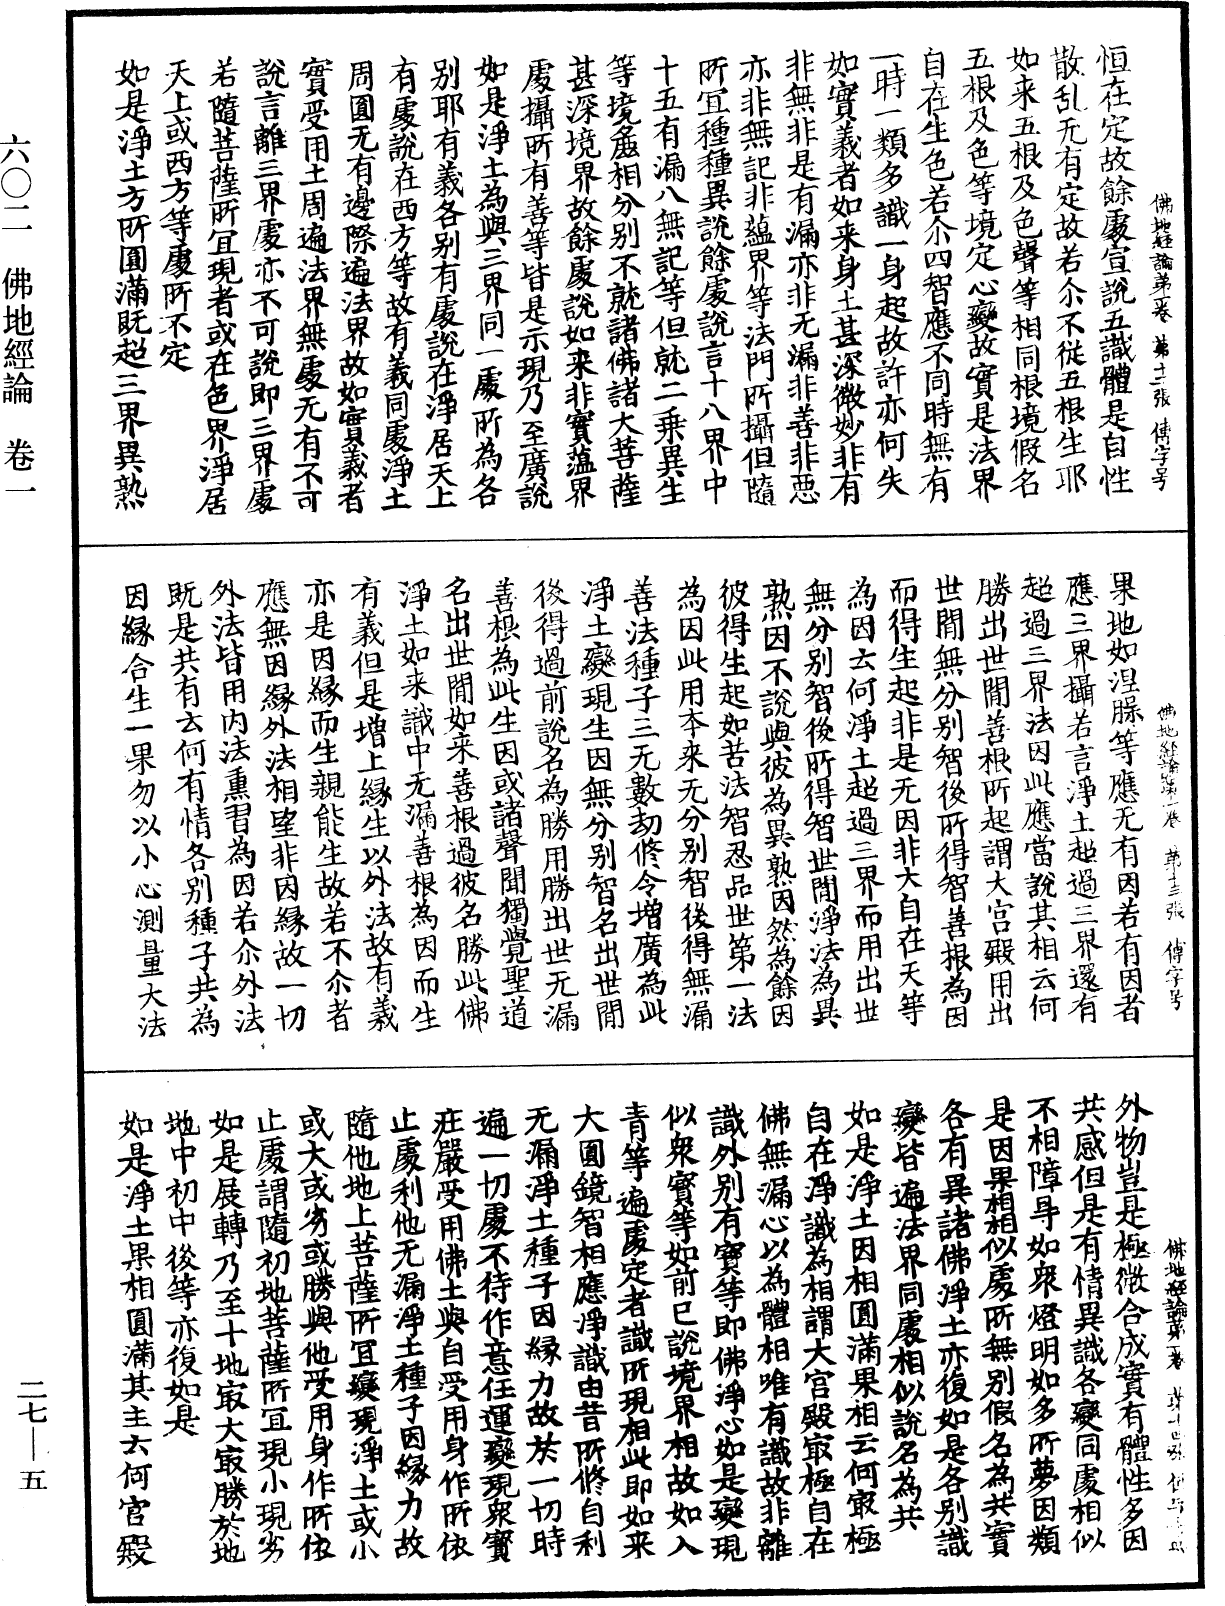 佛地經論第一卷 第十二張 傳字号
恒在定故餘處宣說五識體是自性
散乱无有定故若尒不從五根生耶
如来五根及色聲等相同根境假名
五根及色等境定心變故實是法界
自在生色若尒四智應不同時無有
一時一類多識一身起故許亦何失
如實義者如来身土甚深微妙非有
非無非是有漏亦非无漏非善非惡
亦非無記非蘊界等法門所攝但隨
所宜種種異說餘處說言十八界中
十五有漏八無記等但就二乗異生
等境麁相分别不就諸佛諸大菩薩
甚深境界故餘處說如来非實蘊界
處攝所有善等皆是示現乃至廣說
如是淨土為與三界同一處所為各
别耶有義各别有處說在淨居天上
有處說在西方等故有義同處淨土
周圓无有邊際遍法界故如實義者
實受用土周遍法界無處无有不可
說言離三界處亦不可說即三界處
若隨菩薩所宜現者或在色界淨居
天上或西方等處所不定
如是淨土方所圓滿既超三界異熟
佛地經論第一卷 第十三張 傳字号
果地如涅槃等應无有因若有因者
應三界攝若言淨土超過三界還有
超過三界法因此應當說其相云何
勝出世閒善根所起謂大宫殿用出
世閒無分别智後所得智善根為因
而得生起非是无因非大自在天等
為因云何淨土超過三界而用出世
無分别智後所得智世閒淨法為異
熟因不說與彼為異熟因然為餘因
彼得生起如苦法智忍品世第一法
為因此用本来无分别智後得無漏
善法種子三无數劫修令增廣為此
淨土變現生因無分别智名出世閒
後得過前說名為勝用勝出世无漏
善根為此生因或諸聲聞獨覺聖道
名出世閒如来善根過彼名勝此佛
淨土如来識中无漏善根為因而生
有義但是增上緣生以外法故有義
亦是因緣而生親能生故若不尒者
應無因緣外法相望非因緣故一切
外法皆用内法熏習為因若尒外法
既是共有云何有情各别種子共為
因緣合生一果勿以小心測量大法
佛地經論第一卷 第十四張 傳字号
外物豈是極微合成實有體性多因
共感但是有情異識各變同處相似
不相障㝵如衆燈明如多所夢因類
是因果相相似處所無别假名為共實
各有異諸佛淨土亦復如是各别識
變皆遍法界同處相似說名為共
如是淨土因相圓滿果相云何㝡極
自在淨識為相謂大宫殿㝡極自在
佛無漏心以為體相唯有識故非離
識外别有寶等即佛淨心如是變現
似衆寶等如前已說境界相故如入
青等遍處定者識所現相此即如来
大圓鏡智相應淨識由昔所修自利
无漏淨土種子因緣力故於一切時
遍一切處不待作意任運變現衆寶
莊嚴受用佛土與自受用身作所依
止處利他无漏淨土種子因緣力故
隨他地上菩薩所宜變現淨土或小
或大或劣或勝與他受用身作所依
止處謂隨初地菩薩所宜現小現劣
如是展轉乃至十地㝡大㝡勝於地
地中初中後等亦復如是
如是淨土果相圓滿其主云何宫殿
六〇二 佛地經論 卷一
二七—五